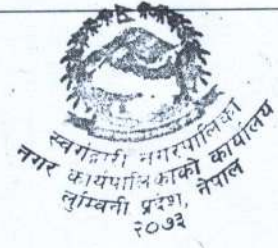 स्वर्गद्वारी नगरपालिका
नगर कार्यपालिकाको कार्यालय
लुम्बिनी प्रदेश, नेपाल
२०७३